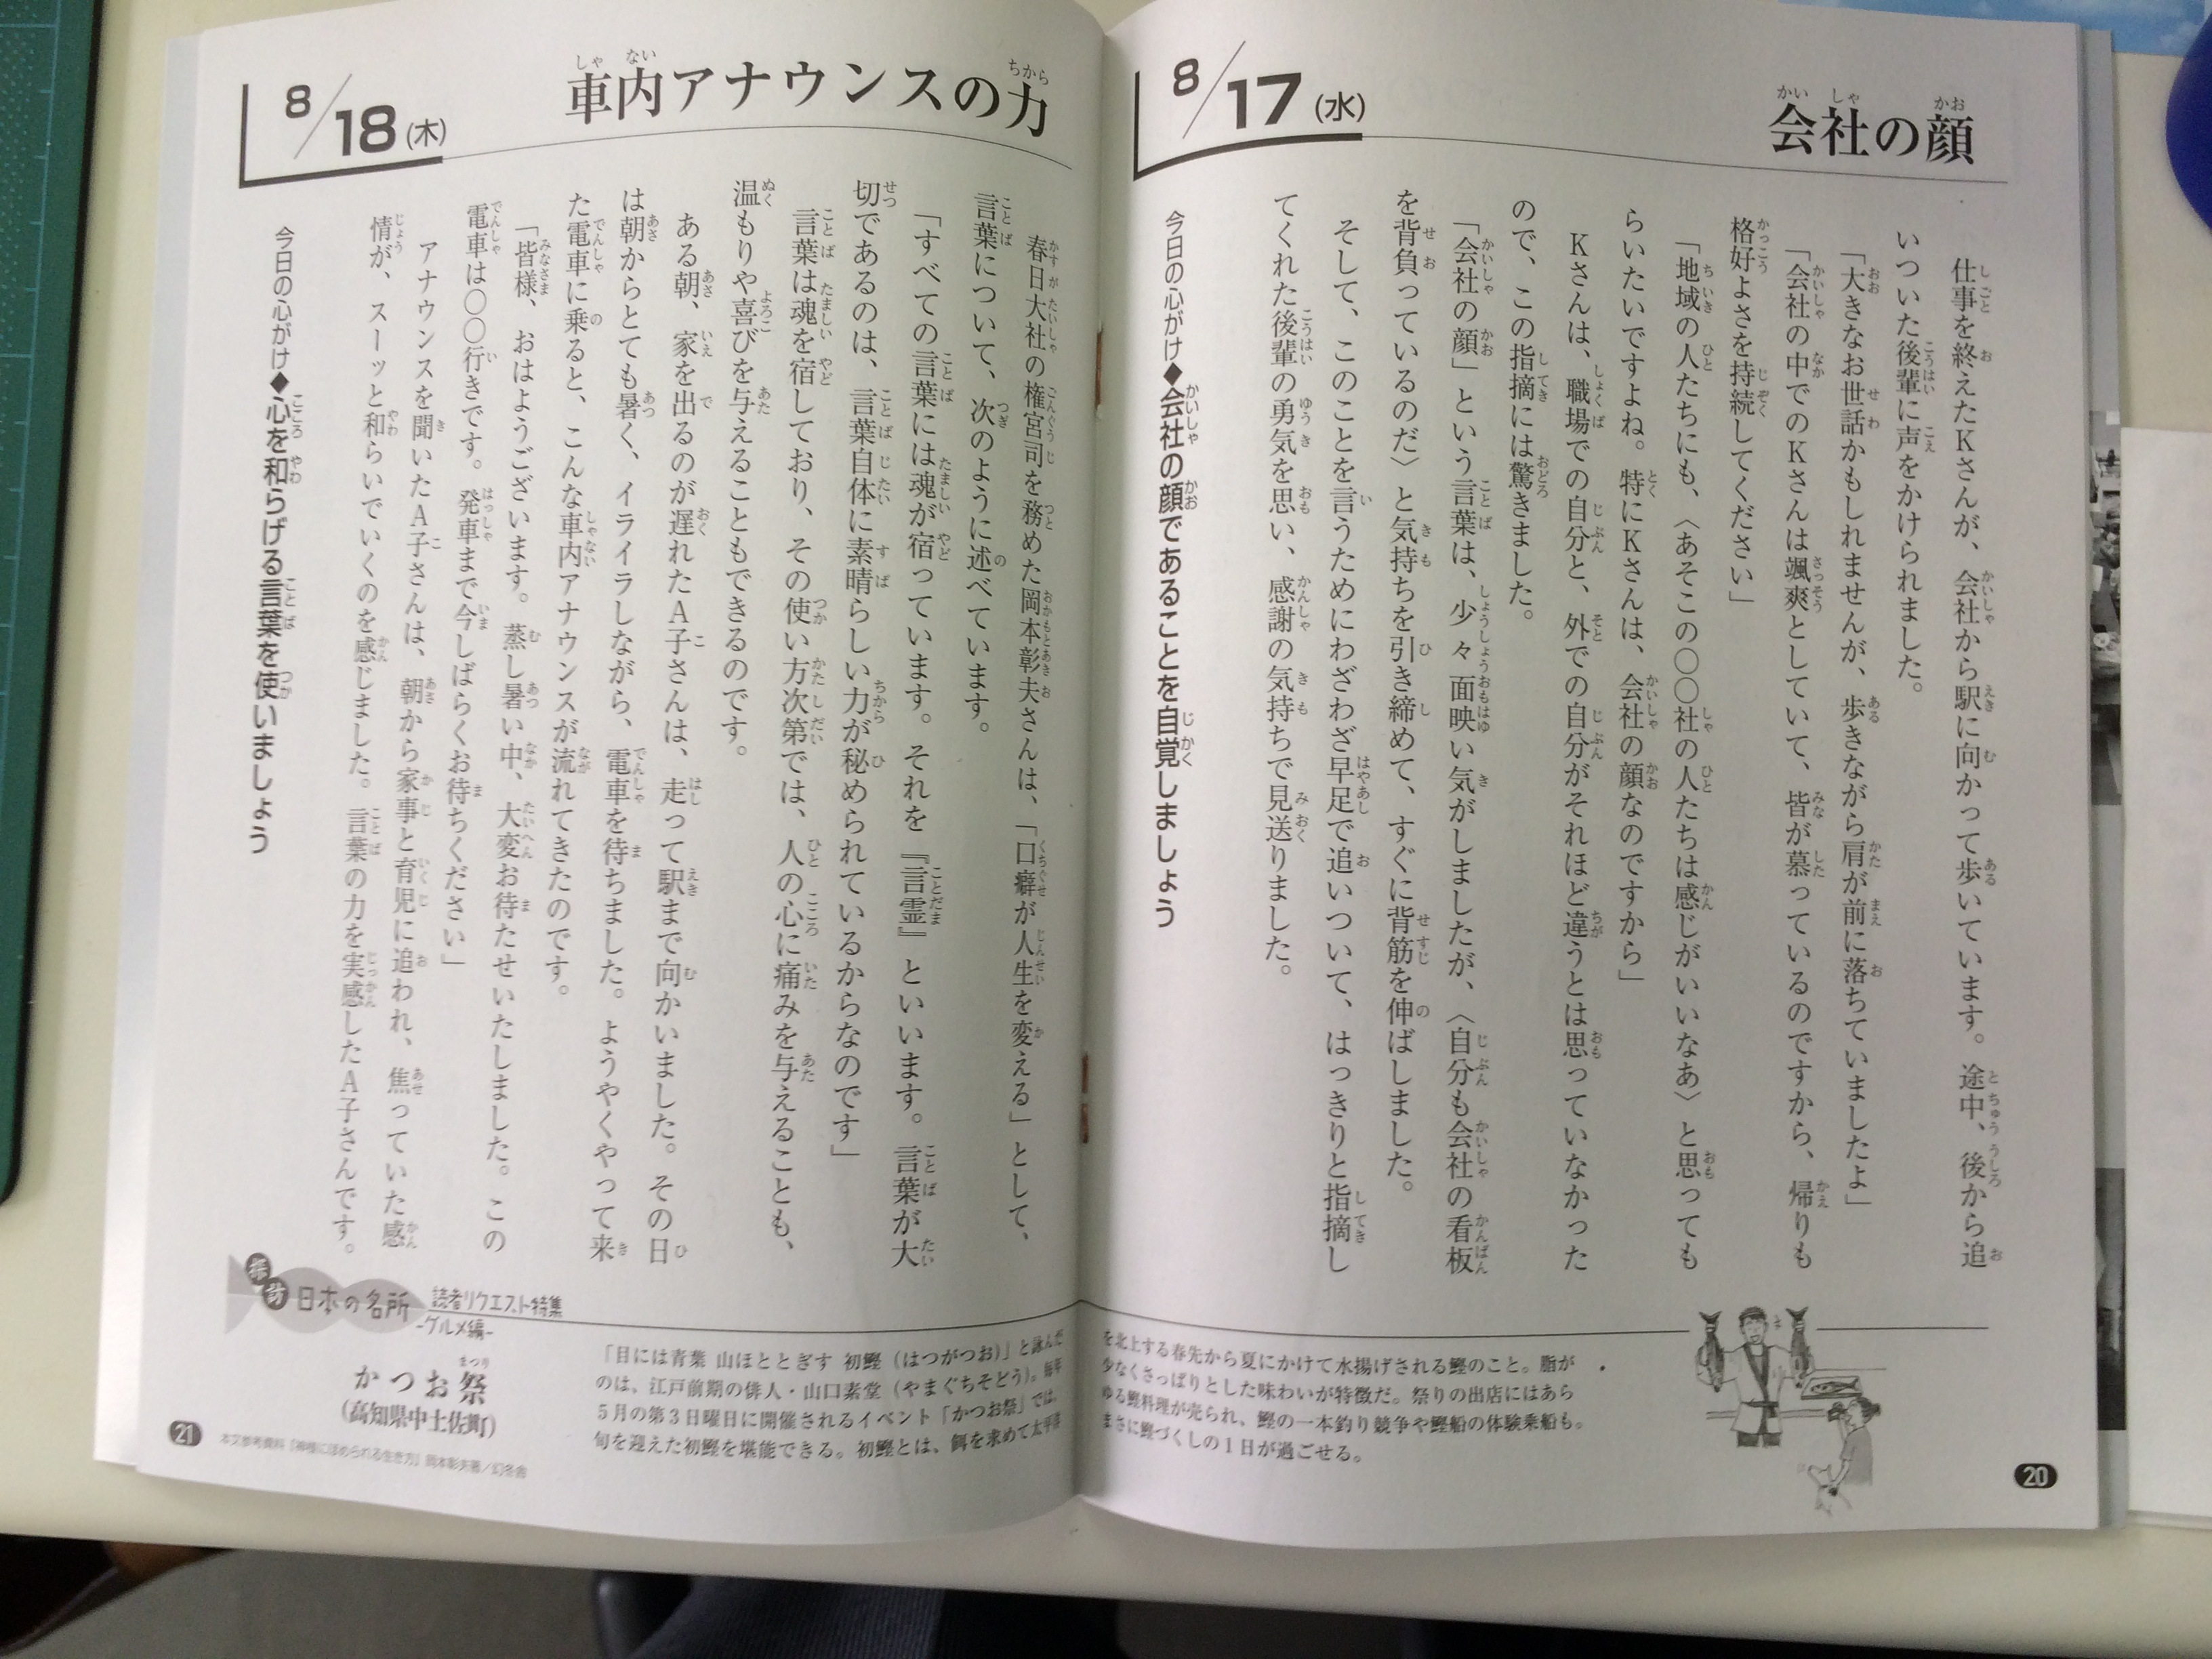 会社の顔
8/17(水)
仕事を終えたKさんが、会社から駅に向かって歩いています。途中、後から追
いついた後輩に声をかけられました。
「大きなお世話かもしれませんが、歩きながら肩が前に落ちていましたよ」
「会社の中でのKさんは颯爽としていて、皆が慕っているのですから、帰りも
格好よさを持続してください」
「地域の人たちにも、〈あそこの〇〇社の人たちは感じがいいなあ〉と思っても
らいたいですよね。特にKさんは、会社の顔なのですから」
Kさんは、職場での自分と、外での自分がそれほど違うとは思っていなかった
ので、この指摘には驚きました。
「会社の顔」という言葉は、少々面映い気がしましたが、〈自分も会社の看板
を背負っているのだ〉と気持ちを引き締めて、すぐに背筋を伸ばしました。
そして、このことを言うためにわざわざ早足で追いついて、はっきりと指摘し
てくれた後輩の勇気を思い、感謝の気持ちで見送りました。
今日の心がけ◆会社の顔であることを自覚しましょう
20
車内アナウンスの力
8/18(木)
春日大社の権宮司を務めた岡本彰夫さんは、「口癖が人生を変える」として、
言葉について、次のように述べています。
「すべての言葉には魂が宿っています。それを『言霊』といいます。言葉が大
切であるのは、言葉自体に素晴らしい力が秘められているからなのです」
言葉は魂を宿しており、その使い方次第では、人の心に痛みを与えることも、
温もりや喜びを与えることもできるのです。
ある朝、家を出るのが遅れたA子さんは、走って駅まで向かいました。その日
は朝からとても暑く、イライラしながら、電車を待ちました。ようやくやって来
た電車に乗ると、こんな車内アナウンスが流れてきたのです。
「皆様、おはようございます。蒸し暑い中、大変お待たせいたしました。この
電車は〇〇行きです。発車まで今しばらくお待ちください」
アナウンスを聞いたA子さんは、朝から家事と育児に追われ、焦っていた感
情が、スーッと和らいでいくのを感じました。言葉の力を実感したA子さんです。
今日の心がけ◆心を和らげる言葉を使いましょう
探訪 日本の名所 読者リクエスト特集
-グルメ編-
かつお祭
(高知県中土佐町)
「目には青葉 山ほととぎす 初鰹(はつがつお)」と詠んだ
のは、江戸前期の俳人・山口素堂(やまぐちそどう)。毎年
5月の第3日曜日に開催されるイベント「かつお祭」では、
旬を迎えた初鰹を堪能できる。初鰹とは、餌を求めて太平洋
を北上する春先から夏にかけて水揚げされる鰹のこと。脂が
少なくさっぱりとした味わいが特徴だ。祭りの出店にはあら
ゆる鰹料理が売られ、鰹の一本釣り競争や鰹船の体験乗船も。
まさに鰹づくしの1日が過ごせる。
21
本文参考資料『神様にほめられる生き方』岡本彰夫著/幻冬舎